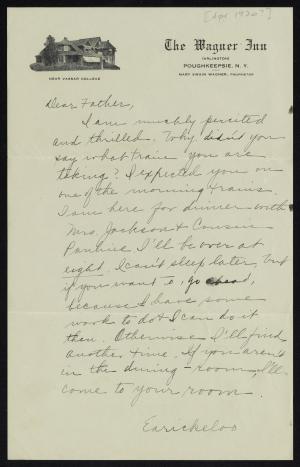 [Apr 1920?]
The Wagner Inn
(ARLINGTON)
POUGHKEEPSIE, N. Y.
NEAR VASSAR COLLEGE
MARY SWAIN WAGNER, PROPRIETOR
Dear Father,
I am muchly percited
and thrilled. Why didn't you
say what train you are
taking? I expected you on
one of the morning trains.
I am here for dinner with
Mrs. Jackson & Cousin
Pannie I'll be over at
eight. I can't sleep later, but
if you want to, go ahead,
because I have some
work to do & I can do it
then. Otherwise I'll find
another time. If you aren't
in the dining-room, I'll
come to your room.